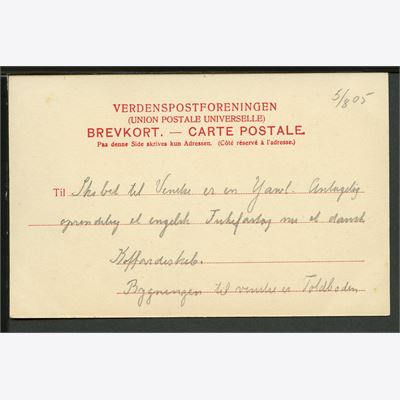 5/8 05
VERDENSPOSTFORENINGEN
(UNION POSTALE UNIVERSELLE)
BREVKORT. — CARTE POSTALE.
Paa denne Side skrives kun Adressen. (Côté réservé à l'adresse.)
Til Skibet til Venstre er en Yawl. Antagelig
oprindelig et engelsk Fiskefartøj nu et dansk
Koffardiskib.
Bygningen til venstre er Toldboden